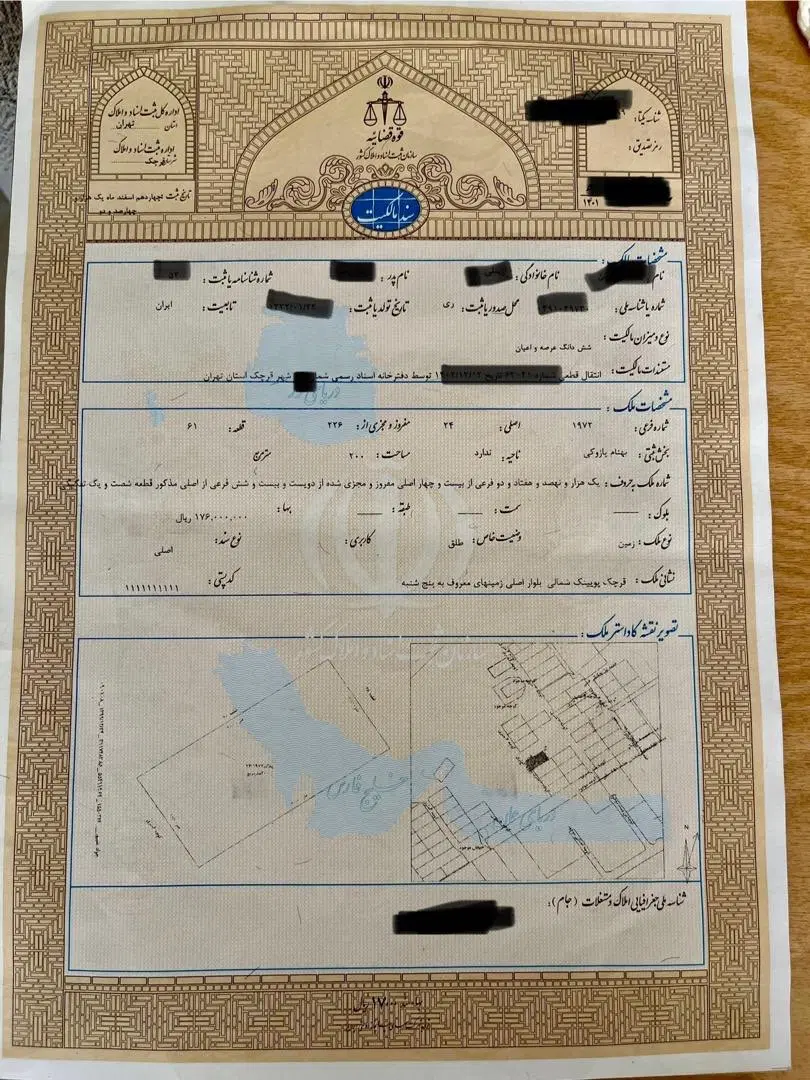 قوه قضائیه
سازمان ثبت اسناد و املاک کشور
سند مالکیت
شناسه یکتا:
رمز تصدیق:
۱۴۰۱
اداره کل ثبت اسناد و املاک
استان تهران
اداره ثبت اسناد و املاک
شهرستان قرچک
تاریخ ثبت: چهاردهم اسفند ماه یک هزار و
چهارصد و دو
مشخصات مالک:
نام نام خانوادگی: نام پدر: شماره شناسنامه یا ثبت:
شماره یا شناسه ملی: محل صدور یا ثبت: ری تاریخ تولد یا ثبت: تابعیت: ایران
نوع و میزان مالکیت: شش دانگ عرصه و اعیان
مستندات مالکیت: انتقال قطعی توسط دفترخانه اسناد رسمی شهر قرچک استان تهران
مشخصات ملک:
شماره فرعی: ۱۹۷۲ اصلی: ۲۴ مفروز و مجزی از: ۲۲۶ قطعه: ۶۱
بخش ثبتی: بهنام پازوکی ناحیه: ندارد مساحت: ۲۰۰ مترمربع
شماره ملک به حروف: یک هزار و نهصد و هفتاد و دو فرعی از بیست و چهار اصلی مفروز و مجزی شده از دویست و بیست و شش فرعی از اصلی مذکور قطعه شصت و یک تفکیکی
بلوک: سمت: طبقه: بها: ۱۷۶,۰۰۰,۰۰۰ ریال
نوع ملک: زمین وضعیت خاص: طلق کاربری: نوع سند: اصلی
نشانی ملک: قرچک پویینک شمالی بلوار اصلی زمینهای معروف به پنج شنبه کد پستی: ۱۱۱۱۱۱۱۱۱۱
تصویر نقشه کاداستر ملک:
خلیج فارس
N
شناسه ملی جغرافیایی املاک و مستغلات (جام):